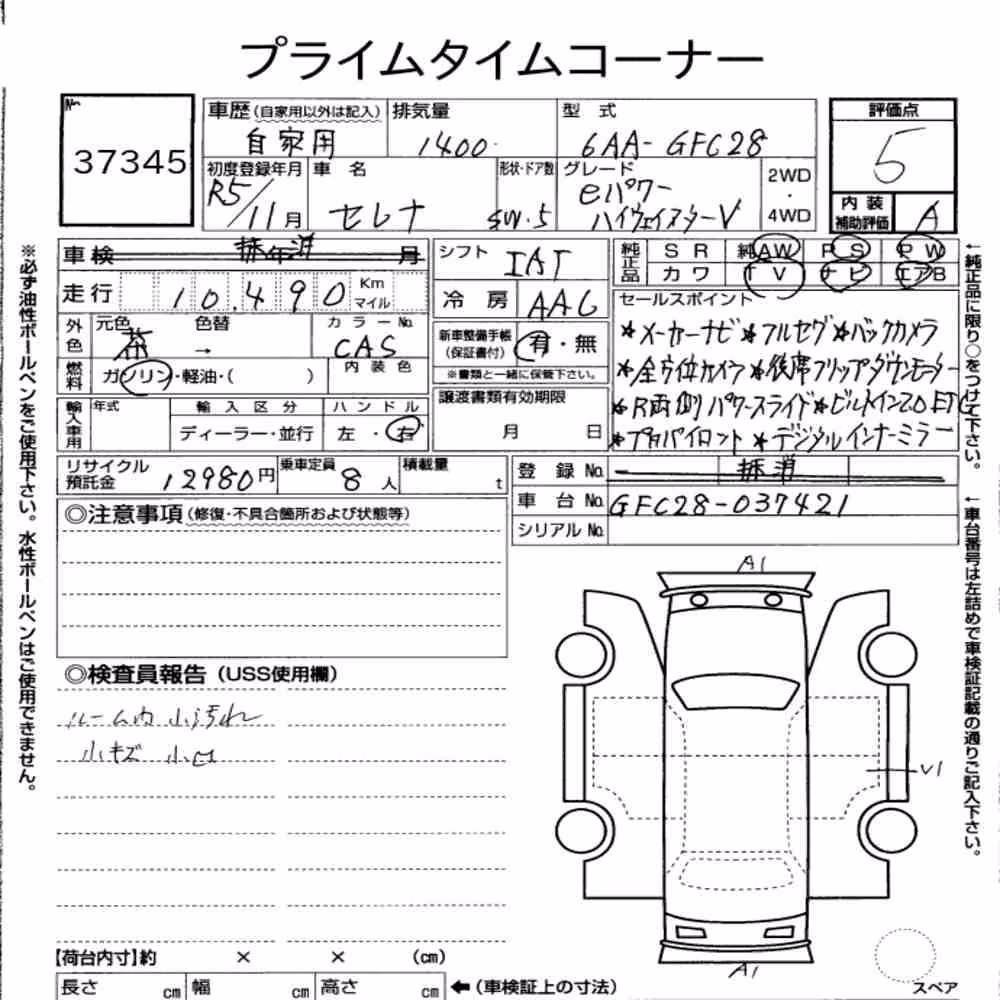 プライムタイムコーナー
No.
37345
車歴(自家用以外は記入)
自家用
排気量
1400
型式
6AA-GFC28
評価点
5
初度登録年月
R5/11月
車名
セレナ
形状・ドア数
SW.5
グレード
eパワー
ハイウェイスターV
2WD
・
4WD
内装
補助評価
A
車検 抹年消 月
走行 10,490 Km
マイル
シフト IAT
冷房 AAC
純正品
SR 純AW PS PW
カワ TV ナビ エアB
外色
元色 茶
色替 →
カラーNo. CAS
燃料
ガソリン・軽油・( )
内装色
新車整備手帳
(保証書付)
有・無
※書類と一緒に保管下さい。
セールスポイント
★メーカーナビ★フルセグ★バックカメラ
★全方位カメラ★後席フリップダウンモニター
★R両側パワースライド★ビルトイン2.0ETC
★プロパイロット★デジタルインナーミラー
輸入車用
年式
輸入区分
ディーラー・並行
ハンドル
左・右
譲渡書類有効期限
月 日
リサイクル
預託金
12980円
乗車定員
8人
積載量
t
登録No. 抹消
車台No. GFC28-037421
シリアルNo.
◎注意事項(修復・不具合箇所および状態等)
◎検査員報告(USS使用欄)
ルーム内小汚れ
小キズ 小凹
A1
V1
A1
【荷台内寸】約 × × (cm)
長さ cm 幅 cm 高さ cm ←(車検証上の寸法)
スペア
※必ず油性ボールペンをご使用下さい。水性ボールペンはご使用できません。
←純正品に限り○をつけて下さい。
←車台番号は左詰めで車検証記載の通りご記入下さい。